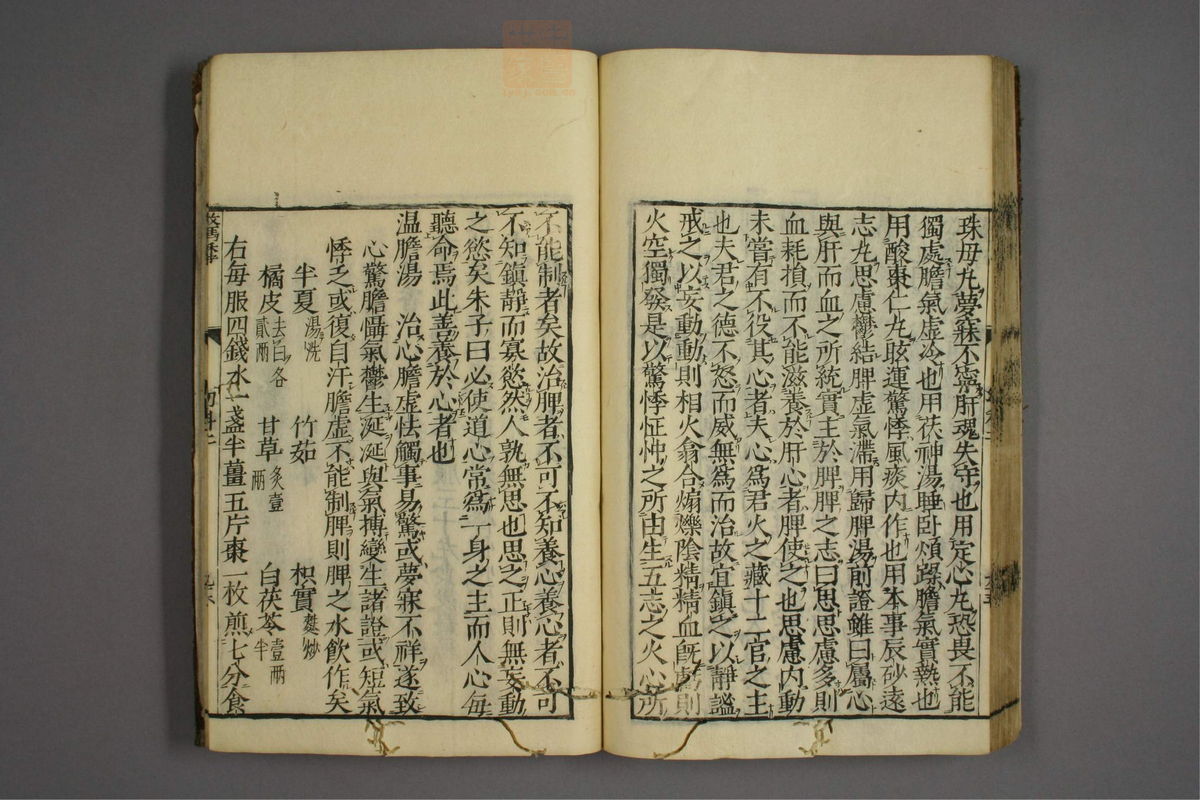 珠母丸夢寐不寧肝魂失守也用定心丸恐畏不能
獨處膽氣虛冷也用茯神湯睡卧煩躁膽氣實熱也
用酸棗仁丸眩運驚悸風痰內作也用本事辰砂遠
志丸思慮鬱結脾虛氣滯用歸脾湯前證雖曰屬心
與肝而血之所統實主於脾脾之志曰思思慮多則
血耗損而不能滋養於肝心者脾使之也思慮內動
未嘗有不役其心者夫心爲君火之藏十二官之主
也夫君之德不怒而威無爲而治故宜鎮之以靜謐
戒之以妄動動則相火翕合煽爍陰精精血旣則
火空獨發是以驚悸怔忡之所由生五志之火心所
不能制者矣故治脾者不可不知養心養心者不可
不知鎮靜而寡慾然人孰無思也思之正則無妄動
之慾矣朱子曰必使道心常爲一身之主而人心每
聽命焉此善養於心者也
温膽湯 治心膽虛怯觸事易驚或夢寐不祥遂致
心驚膽懾氣鬱生涎涎與氣摶變生諸證或短氣
悸乏或復自汗膽虛不能制脾則脾之水飲作矣
半夏湯洗 竹茹 枳實麩炒
橘皮去白各貳兩 甘草炙壹兩 白茯苓壹兩半
右每服四錢水一盞半薑五片棗一枚煎七分食